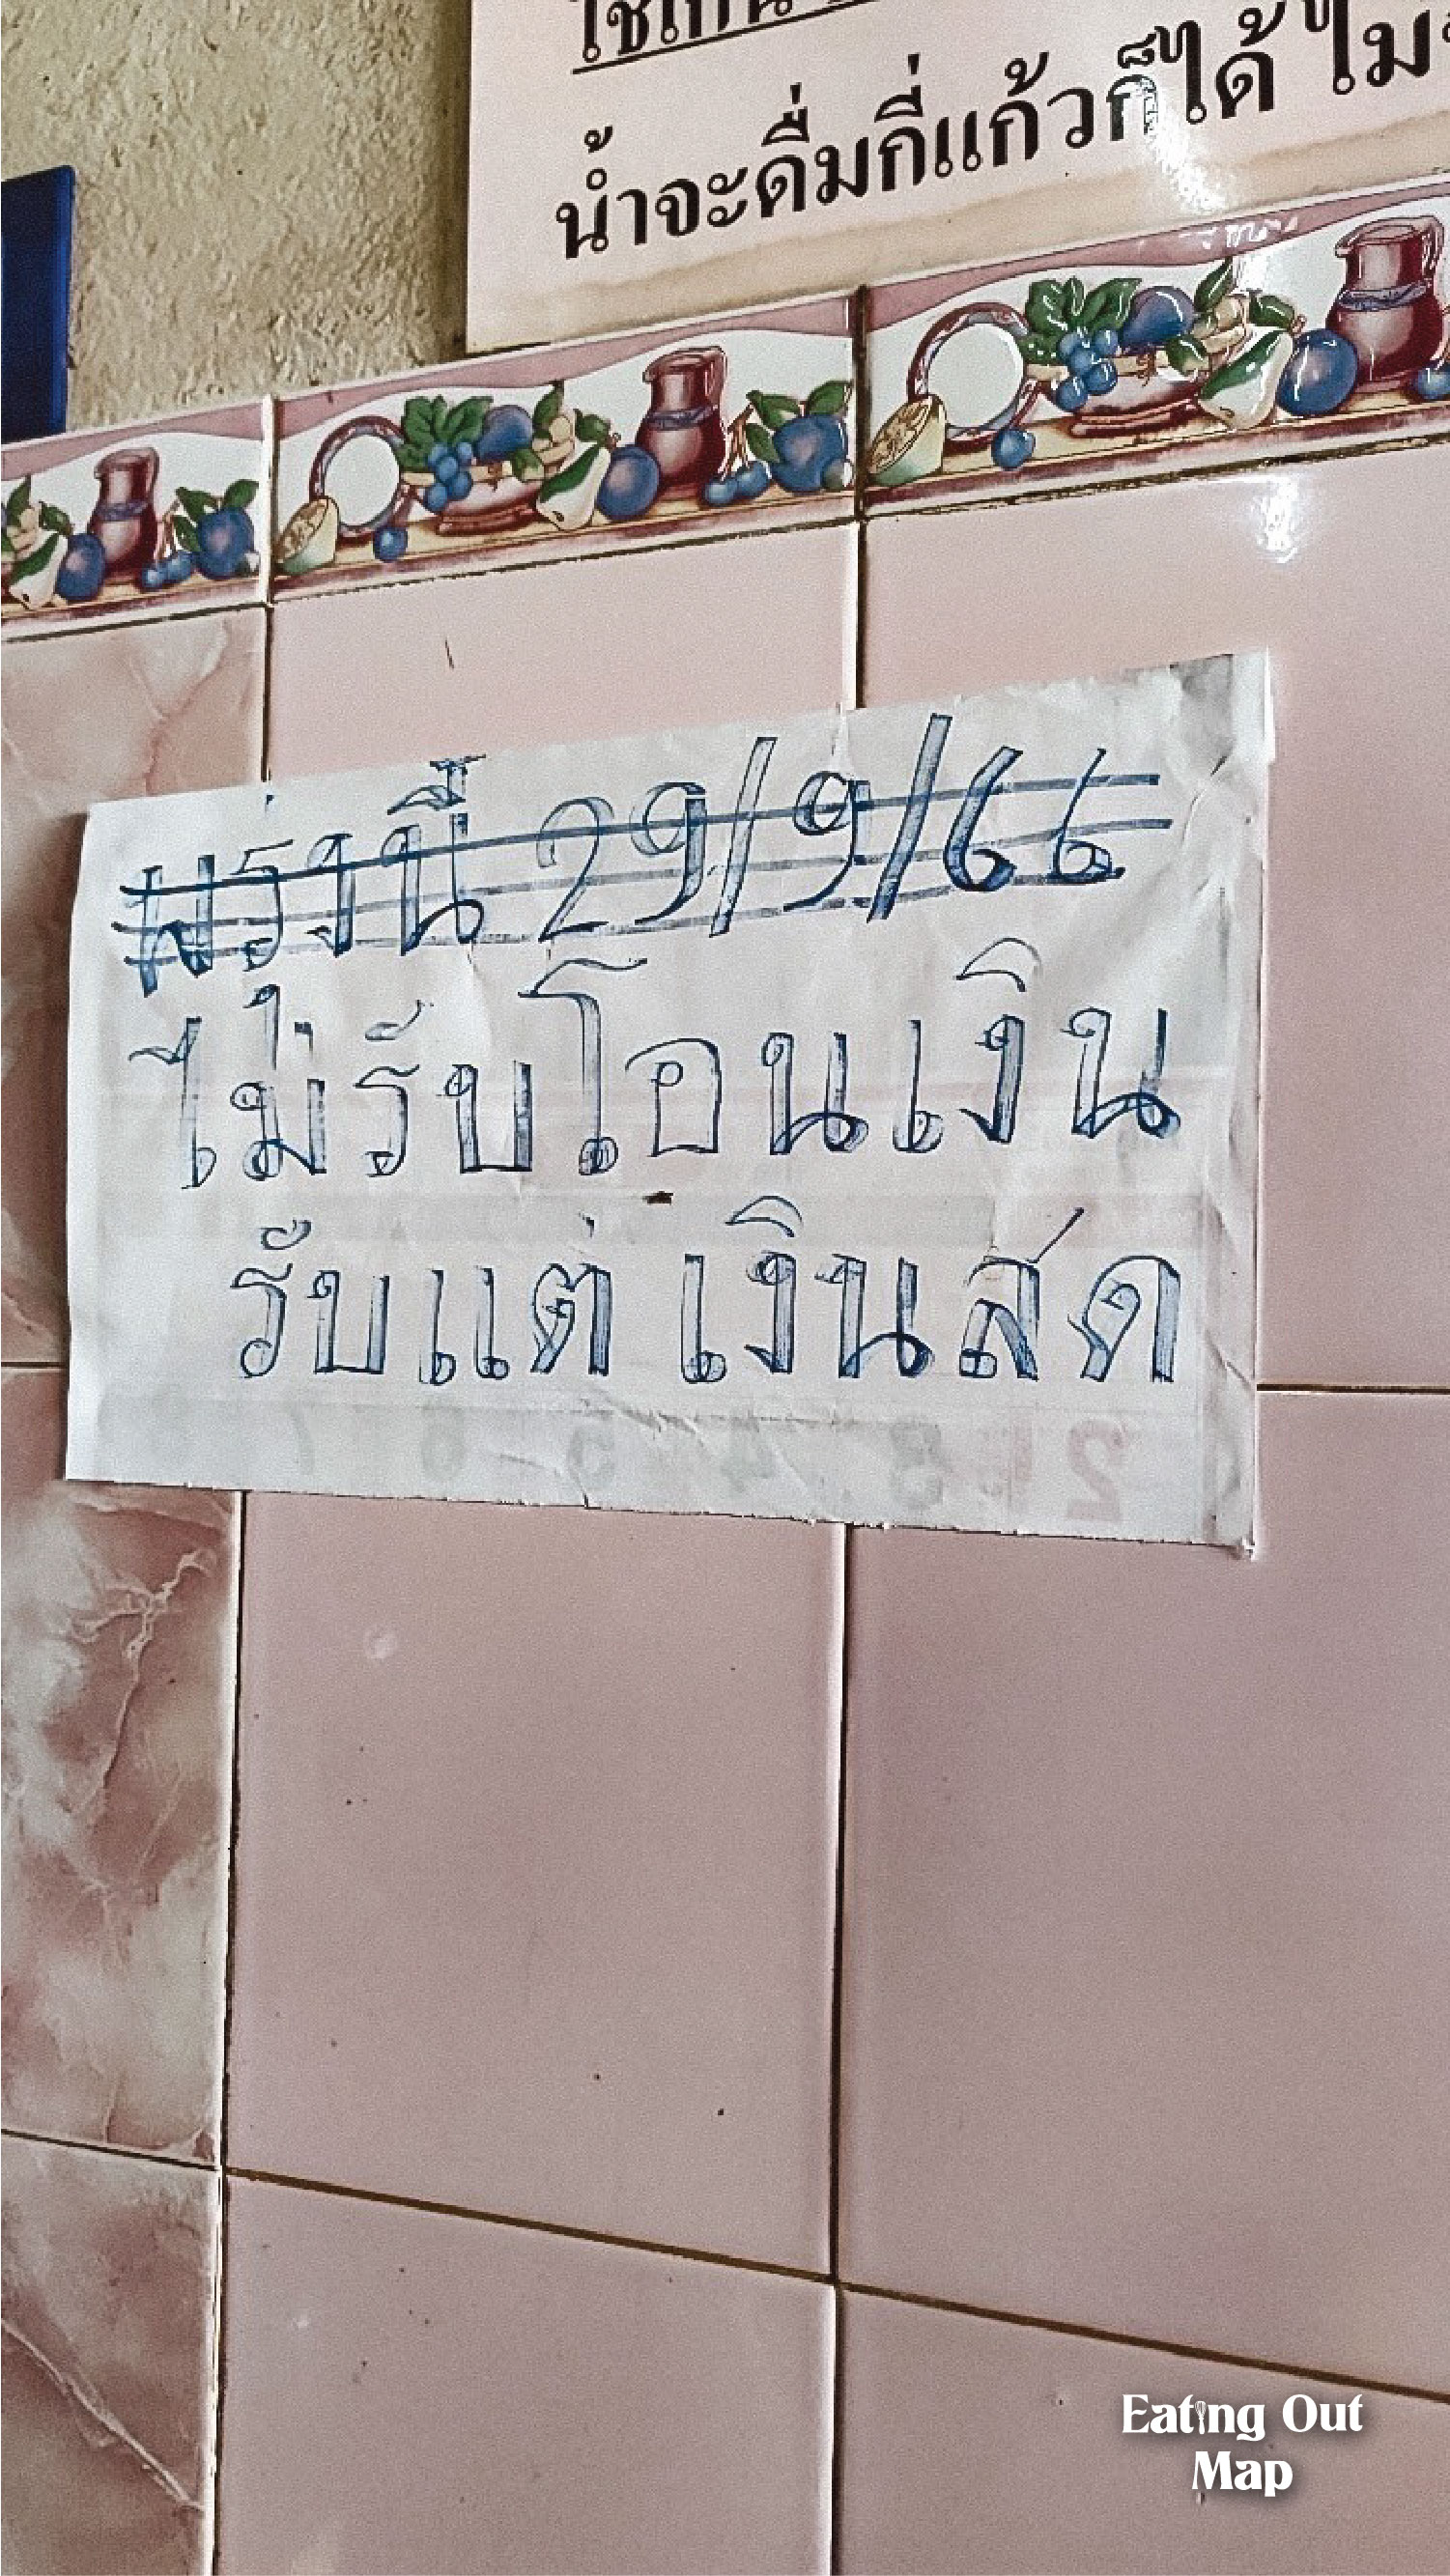 น้ำจะดื่มกี่แก้วก็ได้ ไม่
พรุ่งนี้ 29/9/66
ไม่รับโอนเงิน
รับแต่ เงินสด
Eating Out
Map